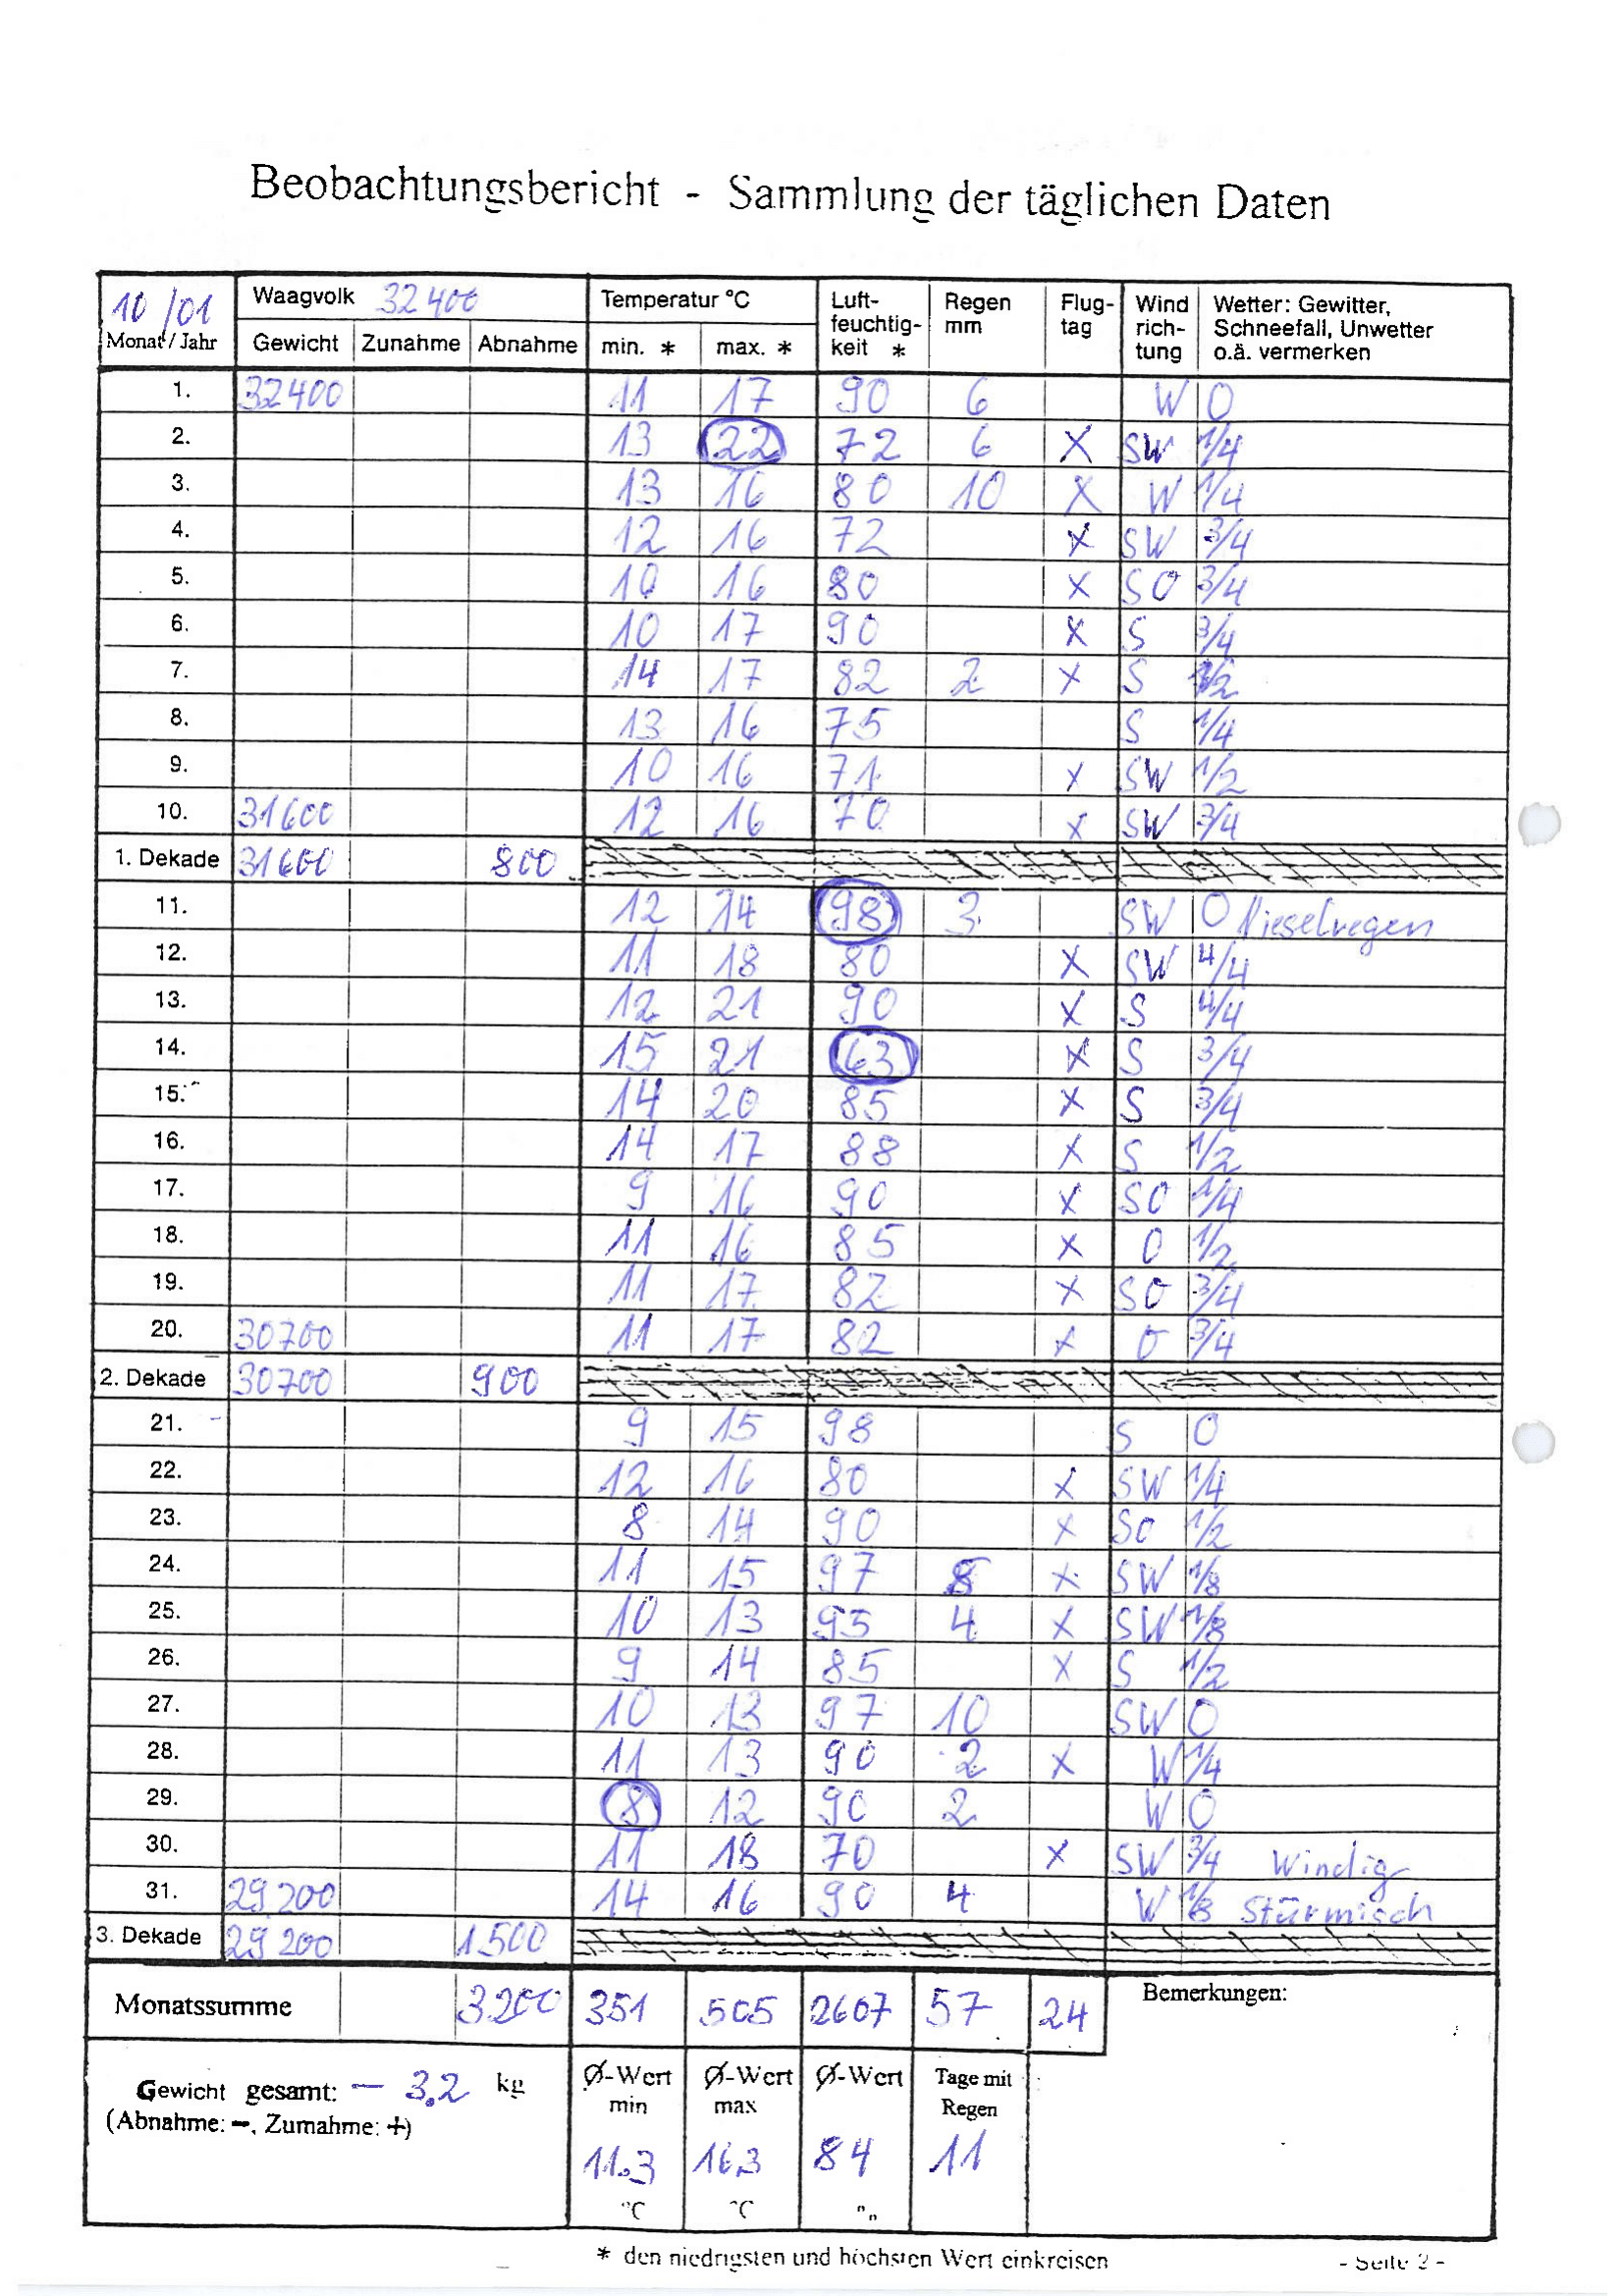 Beobachtungsbericht - Sammlung der täglichen Daten
10/01 Waagvolk 32400 Temperatur °C Luft- Regen Flug- Wind Wetter: Gewitter,
feuchtig- mm tag rich- Schneefall, Unwetter
Monat / Jahr Gewicht Zunahme Abnahme min. * max. * keit * tung o.ä. vermerken
1. 32400 11 17 90 6 W 0
2. 13 22 72 6 X SW 1/4
3. 13 16 80 10 X W 1/4
4. 12 16 72 X SW 3/4
5. 10 16 80 X SO 3/4
6. 10 17 90 X S 3/4
7. 14 17 82 2 X S 1/2
8. 13 16 75 S 1/4
9. 10 16 71 X SW 1/2
10. 31600 12 16 70 X SW 3/4
1. Dekade 31600 800
11. 12 14 98 3 SW 0 Nieselregen
12. 11 18 80 X SW 4/4
13. 12 21 90 X S 4/4
14. 15 21 63 X S 3/4
15. 14 20 85 X S 3/4
16. 14 17 88 X S 1/2
17. 9 16 90 X SO 1/4
18. 11 16 85 X O 1/2
19. 11 17 82 X SO 3/4
20. 30700 11 17 82 X O 3/4
2. Dekade 30700 900
21. 9 15 98 S 0
22. 12 16 80 X SW 1/4
23. 8 14 90 X SO 1/2
24. 11 15 97 8 X SW 1/8
25. 10 13 95 4 X SW 1/8
26. 9 14 85 X S 1/2
27. 10 13 97 10 SW 0
28. 11 13 90 2 X W 1/4
29. 8 12 90 2 W 0
30. 11 18 70 X SW 3/4 Windig
31. 29200 14 16 90 4 W 1/8 Stürmisch
3. Dekade 29200 1500
Monatssumme 3200 351 505 2607 57 24 Bemerkungen:
Gewicht gesamt: - 3.2 kg Ø-Wert Ø-Wert Ø-Wert Tage mit
(Abnahme: -, Zumahme: +) min max Regen
11.3 16.3 84 11
°C °C
* den niedrigsten und höchsten Wert einkreisen - Seite 2 -